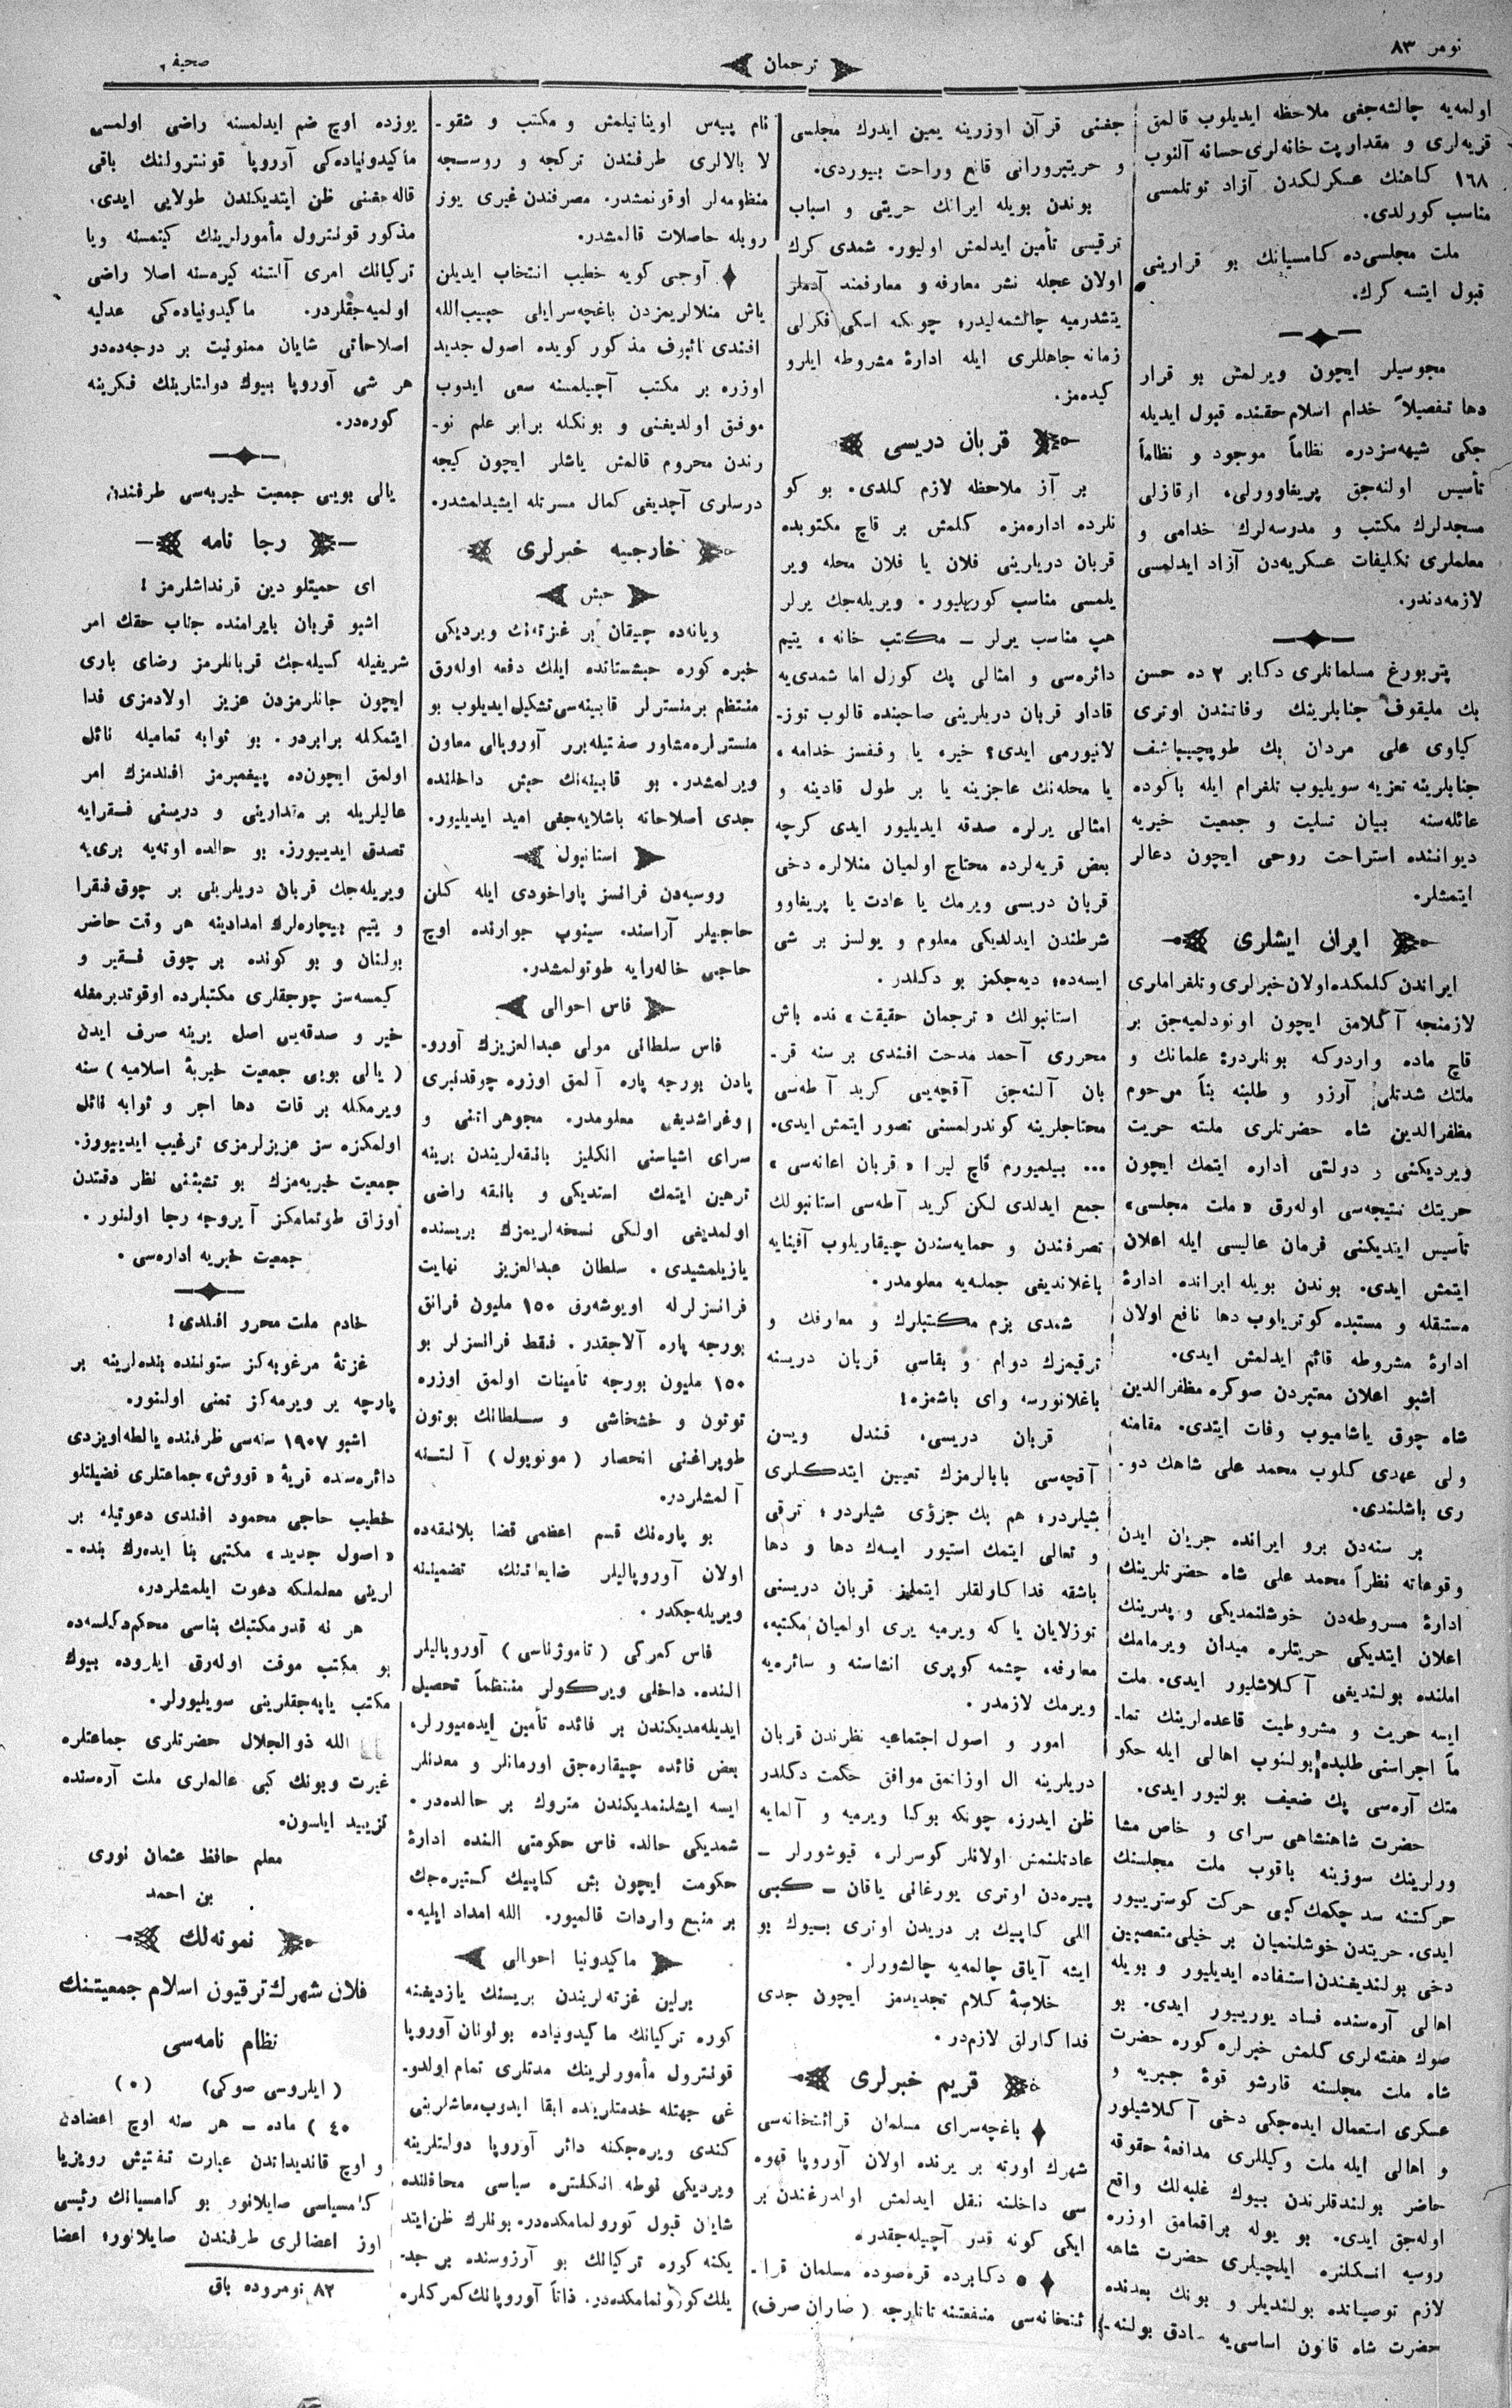 نومر ٨٣
ترجمان
صحيفه ٢
اولمه‌يه چالشه‌جغى ملاحظه ايديلوب قالمق
قزيه‌لرى و مقدار پت خانه‌لرى حسابه آلنوب
١٦٨ كاهنك عسكرلكدن آزاد توتلمسى
مناسب كورلدى.
ملت مجلسى‌ده كامسيانك بو قرارينى
قبول ايتسه كرك.
مجوسيلر ايچون ويرلمش بو قرار
دها تفصيلاً خدام اسلام حقنده قبول ايديله
جكى شبهه‌سزدر، نظاماً موجود و نظاماً
تأسيس اولنه‌جق پريغاوورلى، ارقازلى
مسجدلرك مكتب و مدرسه‌لرك خدامى و
معلملرى تكليفات عسكريه‌دن آزاد ايدلمسى
لازمه‌دندر.
پتربورغ مسلمانلرى دكابر ٢ ده حسن
بك مليقوف جنابلرينك وفاتندن اوترى
كياوى على مردان بك طوپچيباشف
جنابلرينه تعزيه سويليوب تلغرام ايله باكوده
عائله‌سنه بيان تسليت و جمعيت خيريه
ديواننده استراحت روحى ايچون دعالر
ايتمشلر.
ايران ايشلرى
ايراندن كلمكده اولان خبرلرى و تلغراملرى
لازمنجه آكلامق ايچون اونودلميه‌جق بر
قاچ ماده واردركه بونلردر: علمانك و
ملتك شدتلى آرزو و طلبنه بناً مرحوم
مظفرالدين شاه حضرتلرى ملته حريت
ويرديكنى و دولتى اداره ايتمك ايچون
حريتك نتيجه‌سى اوله‌رق «ملت مجلسى»
تأسيس ايتديكنى فرمان عاليسى ايله اعلان
ايتمش ايدى. بوندن بويله ايرانده ادارهٔ
مستقله و مستبده كوتريلوب دها نافع اولان
ادارهٔ مشروطه قائم ايدلمش ايدى.
اشبو اعلان معتبردن صوكره مظفرالدين
شاه چوق ياشاميوب وفات ايتدى. مقامنه
ولى عهدى كلوب محمد على شاهك دو-
رى باشلندى.
بر سنه‌دن برو ايرانده جريان ايدن
وقوعاته نظراً محمد على شاه حضرتلرينك
ادارهٔ مسروطه‌دن خوشلنمديكى و پدرينك
اعلان ايتديكى حريتلره ميدان ويرمامك
املنده بولنديغى آكلاشليور ايدى. ملت
ايسه حريت و مشروطيت قاعده‌لرينك تما-
ماً اجراسنى طلبده بولنوب اهالى ايله حكو
متك آره‌سى پك ضعيف بولنيور ايدى.
حضرت شاهنشاهى سراى و خاص مشا
ورلرينك سوزينه باقوب ملت مجلسنك
حركتنه سد چكمك كبى حركت كوستريييور
ايدى. حريتدن خوشلنميان بر خيلى متعصبين
دخى بولنديغندن استفاده ايديليور و بويله
اهالى آره‌سنده فساد يوريييور ايدى. بو
صوك هفته‌لرى كلمش خبرلره كوره حضرت
شاه ملت مجلسنه قارشو قوهٔ جبريه و
عسكرى استعمال ايده‌جكى دخى آكلاشيلور
و اهالى ايله ملت وكيللرى مدافعهٔ حقوقه
حاضر بولندقلرندن بيوك غلبه‌لك واقع
اوله‌جق ايدى. بو يوله براقمامق اوزره
روسيه انكلتره ايلچيلرى حضرت شاهه
لازم توصيانده بولنديلر و بونك بعدنده
حضرت شاه قانون اساسى‌يه صادق بولنه-
جغنى قرآن اوزرينه يمين ايدرك مجلسى
و حريتپرورانى قانع و راحت بييوردى.
بوندن بويله ايرانك حريتى و اسباب
ترقيسى تأمين ايدلمش اوليور. شمدى كرك
اولان عجله نشر معارفه و معارفمند آدملر
يتشدرميه چالشمه‌ليدر؛ چونكه اسكى فكرلى
زمانه جاهللرى ايله ادارهٔ مشروطه ايلرو
كيده‌مز.
قربان دريسى
بر آز ملاحظه لازم كلدى. بو كو
نلرده اداره‌مزه كلمش بر قاچ مكتوبده
قربان دريلرينى فلان يا فلان محله وير
يلمسى مناسب كوريليور. ويريله‌جك يرلر
هپ مناسب يرلر — مكتب خانه، يتيم
دائره‌سى و امثالى پك كوزل اما شمدى‌يه
قادار قربان دريلرينى صاحبنده قالوب توز-
لانيورمى ايدى؟ خير، يا وقفسز خدامه،
يا محله‌نك عاجزينه يا بر طول قادينه و
امثالى يرلره صدقه ايديليور ايدى كرچه
بعض قريه‌لرده محتاج اولميان منلالره دخى
قربان دريسى ويرمك يا عادت يا پريغاوو
شرطندن ايدلديكى معلوم و يولسز بر شى
ايسه‌ده، ديه‌جكمز بو دكلدر.
استانبولك «ترجمان حقيقت» نده باش
محررى آحمد مدحت افندى بر سنه قر-
بان آلنه‌جق آقچه‌يى كريد آطه‌سى
محتاجلرينه كوندرلمسنى تصور ايتمش ايدى.
... بيلميورم قاچ ليرا «قربان اعانه‌سى»
جمع ايدلدى لكن كريد آطه‌سى استانبولك
تصرفندن و حمايه‌سندن چيقاريلوب آفينايه
باغلانديغى جمله‌يه معلومدر.
شمدى بزم مكتبلرك و معارفك و
ترقيمزك دوام و بقاسى قربان دريسنه
باغلانورسه واى باشمزه!
قربان دريسى، قندل ويسن
آقچه‌سى بابالرمزك تعيين ايتدكلرى
شيلردر؛ هم بك جزؤى شيلردر؛ ترقى
و تعالى ايتمك استيور ايسه‌ك دها و دها
باشقه فداكارلقلر ايتملیز قربان دريسنى
توزلايان ياكه ويرميه يرى اولميان مكتبه،
معارفه، چشمه كوپرى انشاسنه و سائره‌يه
ويرمك لازمدر.
امور و اصول اجتماعيه نظرندن قربان
دريلرينه ال اوزانمق موافق حكمت دكلدر
ظن ايدرز، چونكه بوكا ويرميه و آلمايه
عادتلنمش اولانلر كوسرلر، قيوشورلر —
پيره‌دن اوترى يورغانى ياقان — كبى
اللى كاپيك بر دريدن اوترى بيوك بو
ايشه آياق چالمه‌يه چالشورلر.
خلاصهٔ كلام تجديدمز ايچون جدى
فداكارلق لازم‌در.
قريم خبرلرى
باغچه‌سراى مسلمان قرائتخانه‌سى
شهرك اورته بر يرنده اولان آوروپا قهوه
سى داخلنه نقل ايدلمش اولدرغندن بر
ايكى كونه قدر آچيله‌جقدر.
٥ دكابرده قره‌صوده مسلمان قرا-
ئتخانه‌سى منفعتنه تاتارجه (صاران صرف)
نام پييه‌س اوينانيلمش و مكتب و شقو-
لا بالالرى طرفندن تركجه و روسجه
منظومه‌لر اوقونمشدر. مصرفندن غيرى يوز
روبله حاصلات قالمشدر.
آوجى كويه خطيب انتخاب ايديلن
ياش منلالريمزدن باغچه‌سرايلى حبيب‌الله
افندى نائبوف مذكور كويده اصول جديد
اوزره بر مكتب آچيلمسنه سعى ايدوب
موفق اولديغنى و بونكله برابر علم نو-
رندن محروم قالمش ياشلر ايچون كيجه
درسلرى آچديغى كمال مسرتله ايشيدلمشدر.
خارجيه خبرلرى
حبش
ويانه‌ده چيقان بر غزته‌نك ويرديكى
خبره كوره حبشستانده ايلك دفعه اوله‌رق
منتظم بر منسترلر قابينه‌سى تشكيل ايديلوب بو
منسترلره مشاور صفتيله برر آوروپالى معاون
ويرلمشدر. بو قابينه‌نك حبش داخلنده
جدى اصلاحاته باشلايه‌جغى اميد ايديليور.
استانبول
روسيه‌دن فرانسز پاراخودى ايله كلن
حاجيلر آراسنده سينوپ جوارنده اوچ
حاجى خاله‌رايه طوتولمشدر.
فاس احوالى
فاس سلطانى مولى عبدالعزيزك آورو-
پادن بورجه پاره آلمق اوزره چوقدنبرى
اوغراشديغى معلومدر. مجوهراتنى و
سراى اشياسنى انكليز بانقه‌لريندن برينه
ترهين ايتمك استديكى و بانقه راضى
اولمديغى اولكى نسخه‌لريمزك بريسنده
يازيلمشيدى. سلطان عبدالعزيز نهايت
فرانسزلرله اويوشه‌رق ١٥٠ مليون فرانق
بورجه پاره آلاجقدر. فقط فرانسزلر بو
١٥٠ مليون بورجه تأمينات اولمق اوزره
توتون و خشخاشى و سلطانك بوتون
طوپراغنى انحصار (مونوپول) آلتنه
آلمشلردر.
بو پاره‌نك قسم اعظمى قضا بلانقه‌ده
اولان آوروپاليلر ضايعاتنك تضميننه
ويريله‌جكدر.
فاس كمركى (تاموژناسى) آوروپاليلر
النده. داخلى ويركولر منتظماً تحصيل
ايديله‌مديكندن بر فائده تأمين ايده‌ميورلر.
بعض فائده چيقاره‌جق اورمانلر و معدنلر
ايسه ايشلنمديكندن متروك بر حالده‌در.
شمديكى حالده فاس حكومتى النده ادارهٔ
حكومت ايچون بش كاپيك كستيره‌جك
بر منبع واردات قالميور. الله امداد ايليه.
ماكيدونيا احوالى
برلين غزته‌لريندن بريسنك يازديغنه
كوره تركيانك ماكيدونياده بولونان آوروپا
قونترول مأمورلرينك مدتلرى تمام اولدو-
غى جهتله خدمتلرينده ابقا ايدوب معاشلرينى
كندى ويره‌جكنه دائر آوروپا دولتلرينه
ويرديكى نوطه انكلتره سياسى محافلنده
شايان قبول كورولمامكده‌در. بونلرك ظن ايتد
يكنه كوره تركيانك بو آرزوسنده بر جد-
يلك كورونمامكده‌در. ذاتاً آوروپانك كمركلره
يوزده اوچ ضم ايدلمسنه راضى اولمسى
ماكيدونياده‌كى آوروپا قونترولنك باقى
قاله‌جغنى ظن ايتديكندن طولايى ايدى.
مذكور قونترول مأمورلرينك كيتمسنه ويا
تركيانك امرى آلتنه كيرمه‌سنه اصلا راضى
اولميه‌جقلردر. ماكيدونياده‌كى عدليه
اصلاحاتى شايان ممنونيت بر درجه‌ده‌در
هر شى آوروپا بيوك دولتلرينك فكرينه
كوره‌در.
يالى بويى جمعيت خيريه‌سى طرفندن
رجا نامه
اى حميتلو دين قرنداشلرمز!
اشبو قربان بايرامنده جناب حقك امر
شريفيله كسيله‌جك قربانلرمز رضاى بارى
ايچون جانلرمزدن عزيز اولادمزى فدا
ايتمكله برابردر. بو ثوابه تماميله نائل
اولمق ايچون‌ده پيغمبرمز افندمزك امر
عاليلريله بر مقدارينى و دريسنى فقرايه
تصدق ايدييورز. بو حالده اوته‌يه برى‌يه
ويريله‌جك قربان دريلرينى بر چوق فقرا
و يتيم بيچاره‌لرك امدادينه هر وقت حاضر
بولنان و بو كونده بر چوق فقير و
كيمسه‌سز چوجقلرى مكتبلرده اوقوتديرمقله
خير و صدقه‌يى اصل يرينه صرف ايدن
(يالى بويى جمعيت خيريهٔ اسلاميه) سنه
ويرمكله بر قات دها اجر و ثوابه نائل
اولمكزه سز عزيزلرمزى ترغيب ايدييورز.
جمعيت خيريه‌مزك بو تشبثنى نظر دقتدن
اوزاق طوتمامكز آيروجه رجا اولنور.
جمعيت خيريه اداره‌سى.
خادم ملت محرر افندى!
غزتهٔ مرغوبه‌كز ستوننده بنده‌لرينه بر
پارچه ير ويرمه‌كز تمنى اولنور.
اشبو ١٩٠٧ سنه‌سى ظرفنده يالطه اويزدى
دائره‌سنده قريهٔ «قووش» جماعتلرى فضيلتلو
خطيب حاجى محمود افندى دعوتيله بر
«اصول جديد» مكتبى بنا ايده‌رك بنده-
لرينى معلملكه دعوت ايلمشلردر.
هر نه قدر مكتبك بناسى محكم دكلسه‌ده
بو مكتب موقت اوله‌رق ايلروده بيوك
مكتب ياپه‌جقلرينى سويليورلر.
الله ذوالجلال حضرتلرى جماعتلره
غيرت وبونك كبى عالملرى ملت آره‌سنده
تزييد ايلسون.
معلم حافظ عثمان نورى
بن احمد
نمونه‌لك
فلان شهرك ترقيون اسلام جمعيتنك
نظام نامه‌سى
(ايلروسى صوكى) (٥)
٤٠) ماده — هر سنه اوچ اعضادن
و اوچ قانديداتدن عبارت تفتيش رويزيا
كامسياسى صايلانور بو كامسيانك رئيسى
اوز اعضالرى طرفندن صايلانور؛ اعضا
٨٢ نومروده باق